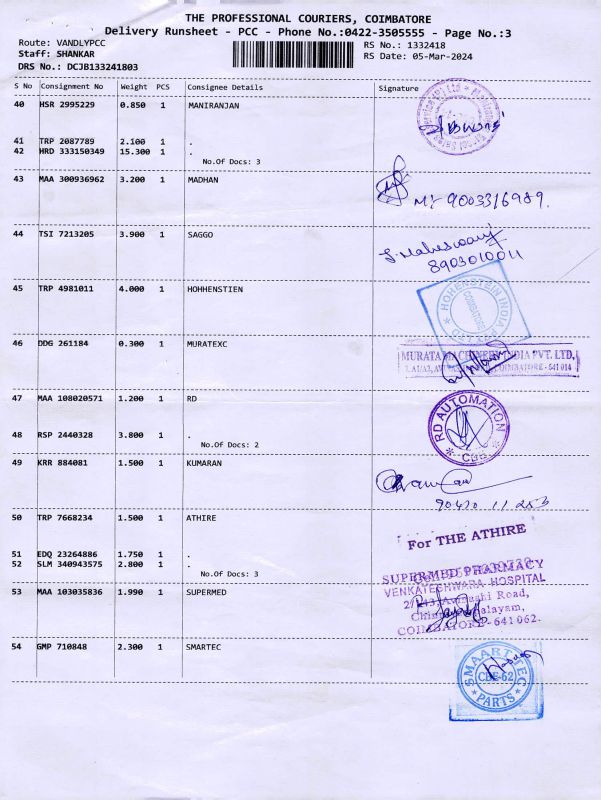 THE PROFESSIONAL COURIERS, COIMBATORE
Delivery Runsheet - PCC - Phone No.:0422-3505555 - Page No.:3
Route: VANDLYPCC
RS No.: 1332418
Staff: SHANKAR
RS Date: 05-Mar-2024
DRS No.: DCJB133241803
S No Consignment No Weight PCS Consignee Details Signature
40 HSR 2995229 0.850 1 MANIRANJAN
41 TRP 2087789 2.100 1 .
42 HRD 333150349 15.300 1 .
No.Of Docs: 3
43 MAA 300936962 3.200 1 MADHAN
9003316989.
44 TSI 7213205 3.900 1 SAGGO
8903010011
45 TRP 4981011 4.000 1 HOHHENSTIEN
HOHENSTEIN INDIA
COIMBATORE
46 DDG 261184 0.300 1 MURATEXC
MURATA MACHINERY INDIA PVT. LTD,
COIMBATORE - 641 014
47 MAA 108020571 1.200 1 RD
RD AUTOMATION
* CBE *
48 RSP 2440328 3.800 1 .
No.Of Docs: 2
49 KRR 884081 1.500 1 KUMARAN
50 TRP 7668234 1.500 1 ATHIRE
For THE ATHIRE
51 EDQ 23264886 1.750 1 .
52 SLM 340943575 2.800 1 .
No.Of Docs: 3
53 MAA 103035836 1.990 1 SUPERMED
SUPERMED PHARMACY
VENKATESHWARA HOSPITAL
Road,
COIMBATORE-641 062.
54 GMP 710848 2.300 1 SMARTEC
SMAARTTEC
CBE-62
* PARTS *